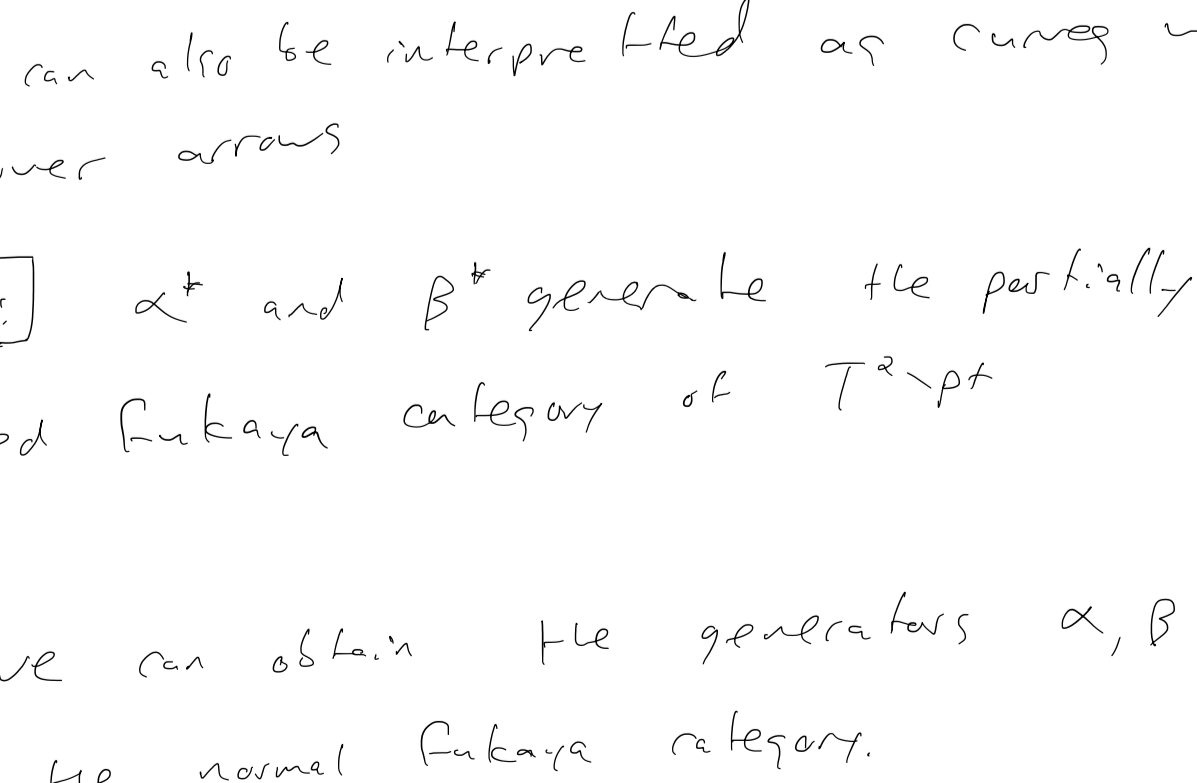 can also be interpretted as curves
over arrows
α* and β* generate the partially
Fukaya category of T²\pt
we can obtain the generators α, β
normal Fukaya category.